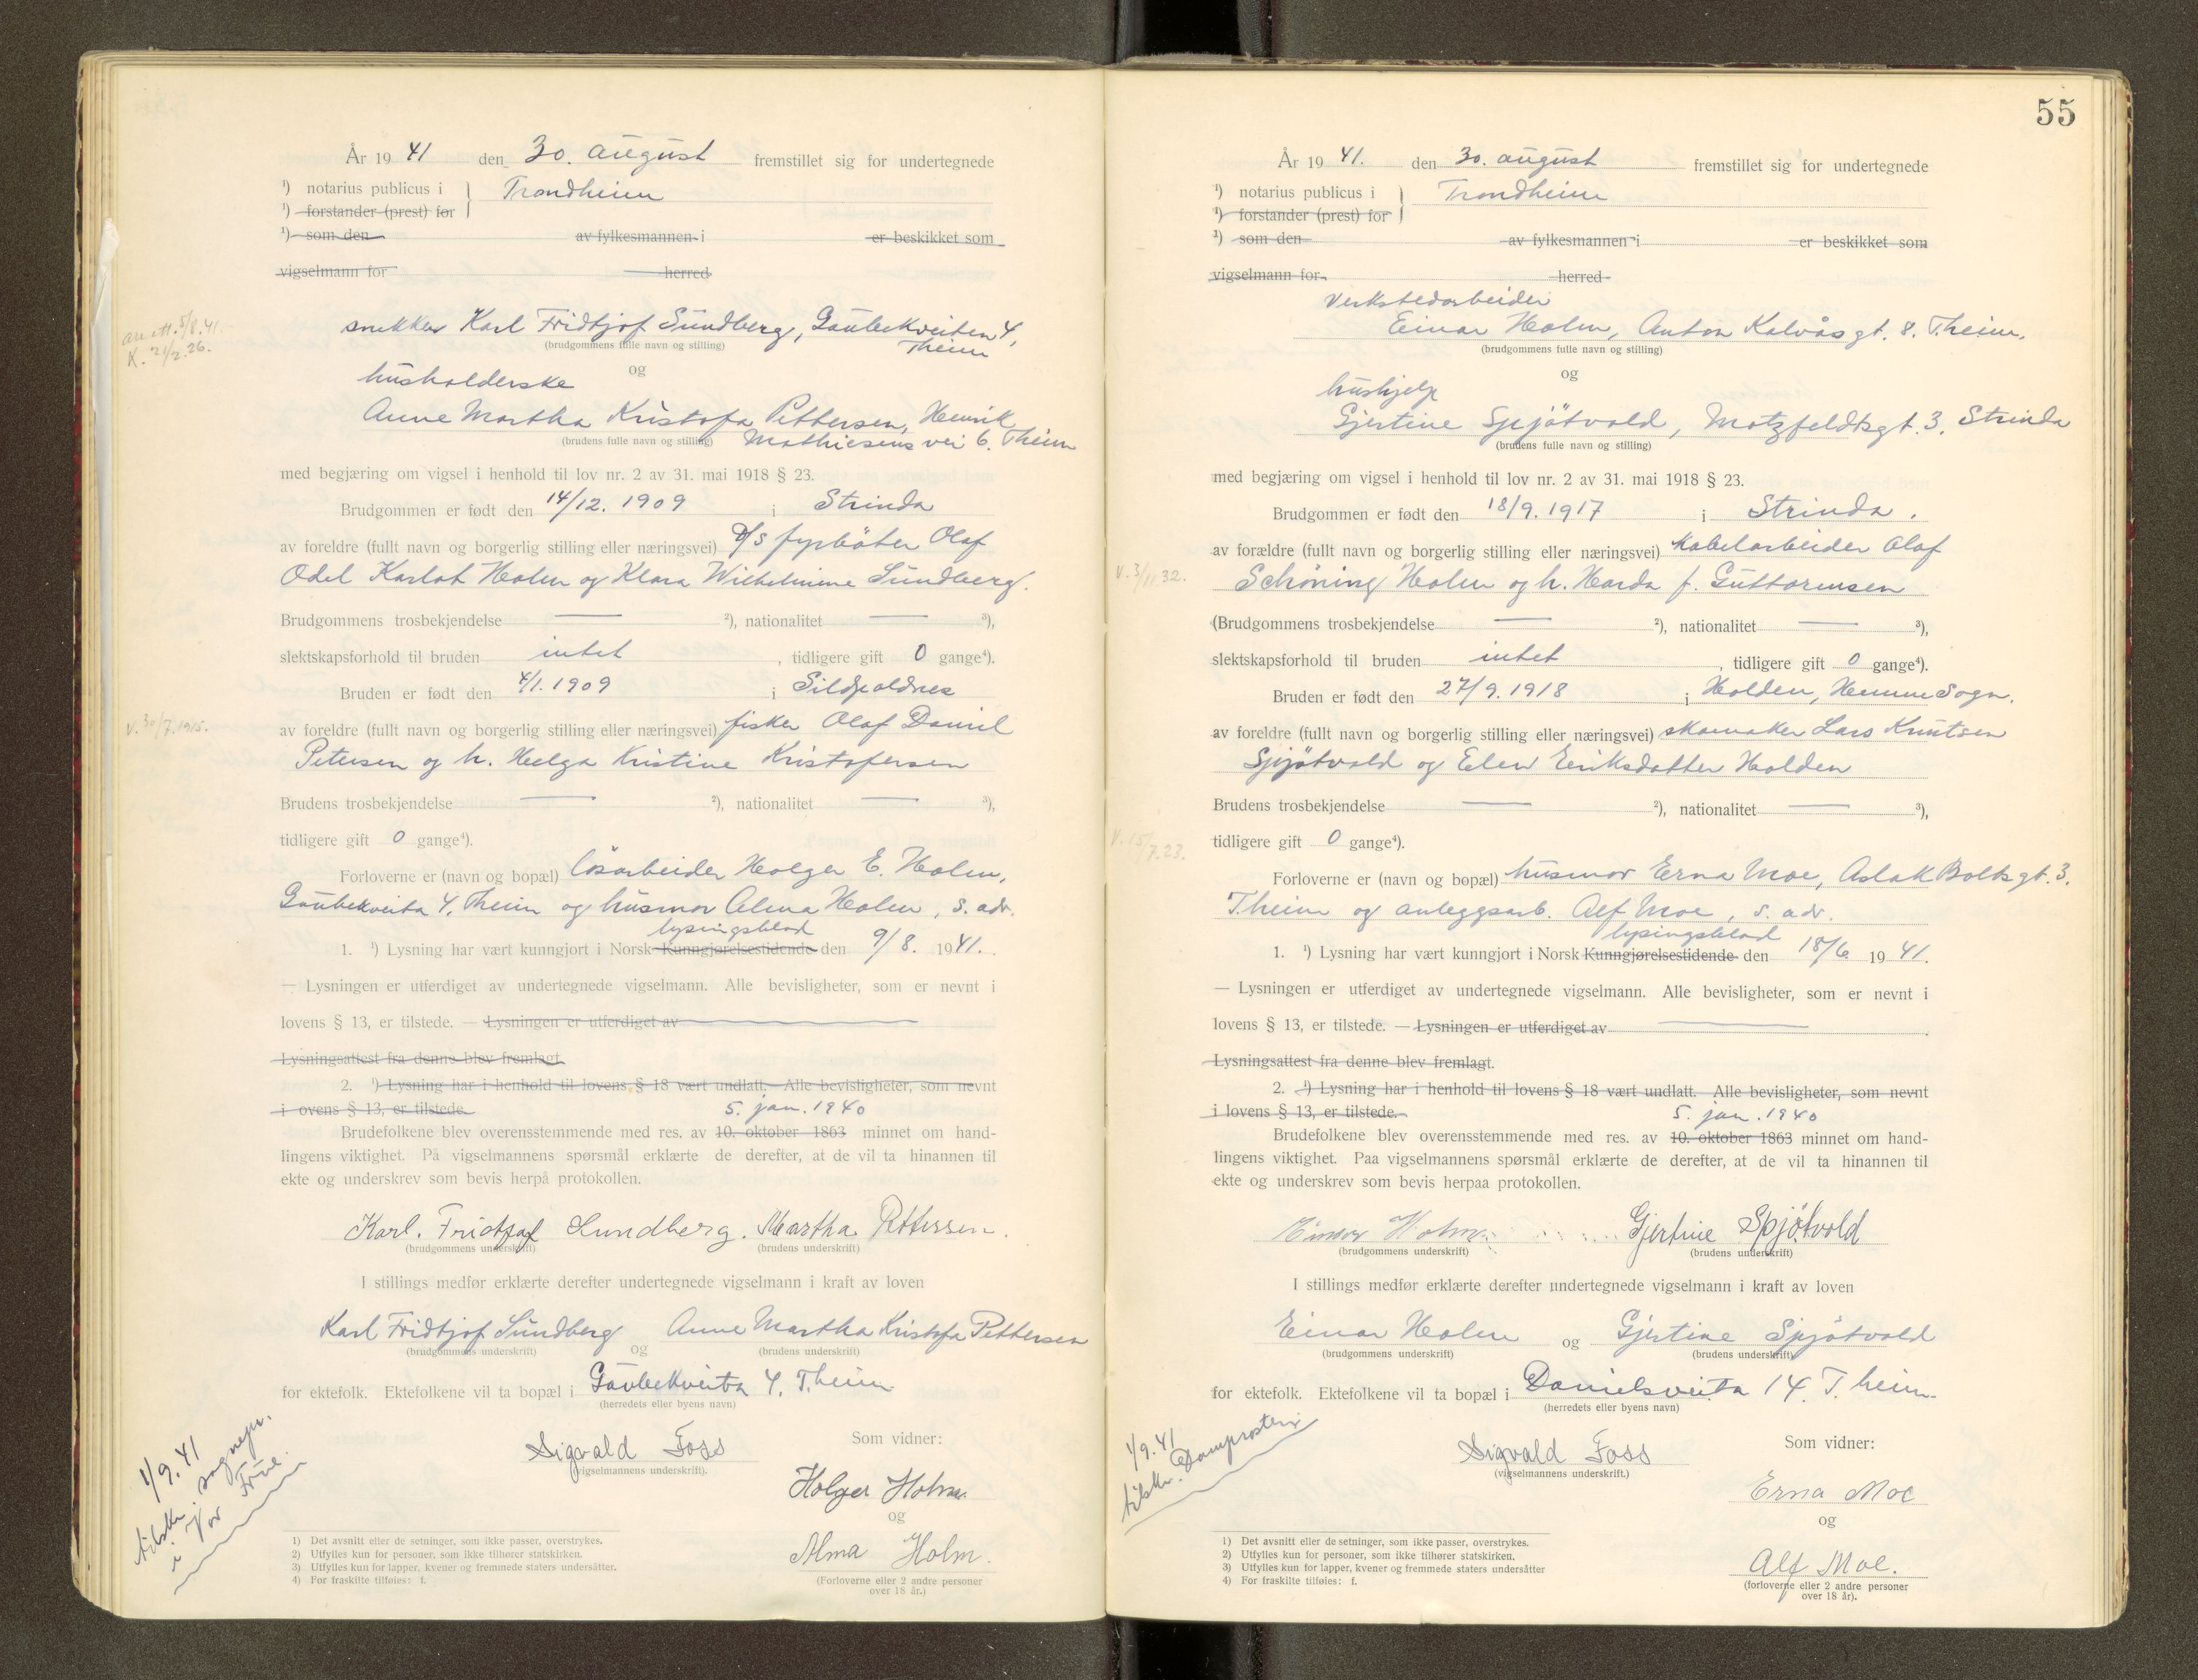 År 19 41 den 30. august fremstillet sig for undertegnede
¹) notarius publicus i } Trondheim
¹) forstander (prest) for
¹) som den av fylkesmannen i er beskikket som
vigselmann for herred
snekker Karl Fridtjof Sundberg, Gaubekveiten 4,
(brudgommens fulle navn og stilling) Theim
og
husholderske
Anne Martha Kristofa Pettersen, Henrik
(brudens fulle navn og stilling) Mathiesens vei 6. Theim
med begjæring om vigsel i henhold til lov nr. 2 av 31. mai 1918 § 23.
Brudgommen er født den 14/12. 1909 i Strinda
av foreldre (fullt navn og borgerlig stilling eller næringsvei) D/S fyrbøter Olaf
Odel Karlot Holm og Klara Wilhelmine Sundberg.
Brudgommens trosbekjendelse — ²), nationalitet — ³),
slektskapsforhold til bruden intet , tidligere gift 0 gange⁴).
Bruden er født den 4/1. 1909 i Sildpoldnes
av foreldre (fullt navn og borgerlig stilling eller næringsvei) fisker Olaf Daniel
Petersen og h. Helga Kristine Kristofersen
Brudens trosbekjendelse — ²), nationalitet — ³),
tidligere gift 0 gange⁴).
Forloverne er (navn og bopæl) løsarbeider Holger E. Holm,
Gaubekveita 4, Theim og husmor Alma Holm, s. adr.
lysingsblad
1. ¹) Lysning har vært kunngjort i Norsk Kunngjørelsestidende den 9/8. 1941.
— Lysningen er utferdiget av undertegnede vigselmann. Alle bevisligheter, som er nevnt i
lovens § 13, er tilstede. — Lysningen er utferdiget av
Lysningsattest fra denne blev fremlagt
2. ¹) Lysning har i henhold til lovens § 18 vært undlatt. Alle bevisligheter, som nevnt
i ovens § 13, er tilstede. 5. jan. 1940
Brudefolkene blev overensstemmende med res. av 10. oktober 1863 minnet om hand-
lingens viktighet. På vigselmannens spørsmål erklærte de derefter, at de vil ta hinannen til
ekte og underskrev som bevis herpå protokollen.
Karl. Fridtjof Sundberg. Martha Pettersen.
(brudgommens underskrift) (brudens underskrift)
I stillings medfør erklærte derefter undertegnede vigselmann i kraft av loven
Karl Fridtjof Sundberg og Anne Martha Kristofa Pettersen
(brudgommens underskrift) (brudens underskrift)
for ektefolk. Ektefolkene vil ta bopæl i Gaubekveita 4, T.heim
(herredets eller byens navn)
Sigvald Foss Som vidner:
(vigselmannens underskrift).
Holger Holm
og
Alma Holm.
(Forloverne eller 2 andre personer
over 18 år.)
1) Det avsnitt eller de setninger, som ikke passer, overstrykes.
2) Utfylles kun for personer, som ikke tilhører statskirken.
3) Utfylles kun for lapper, kvener og fremmede staters undersåtter.
4) For fraskilte tilføies: f.
K. 21/2.26.
v. 30/7.1915.
1/9.41
sognepr.
i Vor Frue
55
År 19 41. den 30. august fremstillet sig for undertegnede
¹) notarius publicus i } Trondheim
¹) forstander (prest) for
¹) som den av fylkesmannen i er beskikket som
vigselmann for herred
Verkstedarbeider
Einar Holm, Anton Kalvåsgt. 8. T.heim,
(brudgommens fulle navn og stilling)
og
hushjelp
Gjertine Spjøtvold, Motzfeldtsgt. 3, Strinda
(brudens fulle navn og stilling)
med begjæring om vigsel i henhold til lov nr. 2 av 31. mai 1918 § 23.
Brudgommen er født den 18/9. 1917 i Strinda.
av forældre (fullt navn og borgerlig stilling eller næringsvei) Kabelarbeider Olaf
Schøning Holm og h. Harda f. Guttormsen
(Brudgommens trosbekjendelse — ²), nationalitet — ³),
slektskapsforhold til bruden intet , tidligere gift 0 gange⁴).
Bruden er født den 27/9. 1918 i Holden, Hemne Sogn.
av foreldre (fullt navn og borgerlig stilling eller næringsvei) skomaker Lars Knutsen
Spjøtvold og Elen Eriksdatter Holden
Brudens trosbekjendelse — ²), nationalitet — ³),
tidligere gift 0 gange⁴).
Forloverne er (navn og bopæl) husmor Erna Moe, Aslak Boltsgt. 3.
T.heim og anleggsarb. Alf Moe, s. adr.
lysingsblad
1. ¹) Lysning har vært kunngjort i Norsk Kunngjørelsestidende den 18/6 19 41.
— Lysningen er utferdiget av undertegnede vigselmann. Alle bevisligheter, som er nevnt i
lovens § 13, er tilstede. — Lysningen er utferdiget av
Lysningsattest fra denne blev fremlagt.
2. ¹) Lysning har i henhold til lovens § 18 vært undlatt. Alle bevisligheter, som nevnt
i lovens § 13, er tilstede. 5. jan. 1940
Brudefolkene blev overensstemmende med res. av 10. oktober 1863 minnet om hand-
lingens viktighet. Paa vigselmannens spørsmål erklærte de derefter, at de vil ta hinannen til
ekte og underskrev som bevis herpaa protokollen.
Einar Holm. Gjertine Spjøtvold
(brudgommens underskrift) (brudens underskrift)
I stillings medfør erklærte derefter undertegnede vigselmann i kraft av loven
Einar Holm og Gjertine Spjøtvold
(brudgommens underskrift) (brudens underskrift)
for ektefolk. Ektefolkene vil ta bopæl i Danielsveita 14 T.heim.
(herredets eller byens navn)
Sigvald Foss Som vidner:
(vigselmannens underskrift.)
Erna Moe
og
Alf Moe.
(forloverne eller 2 andre personer
over 18 år).
1) Det avsnitt eller de setninger, som ikke passer, overstrykes.
2) Utfylles kun for personer, som ikke tilhører statskirken.
3) Utfylles kun for lapper, kvener og fremmede staters undersåtter
4) For fraskilte tilføies: f.
V. 3/11 32.
V. 15/7.23.
1/9.41
Domprosten